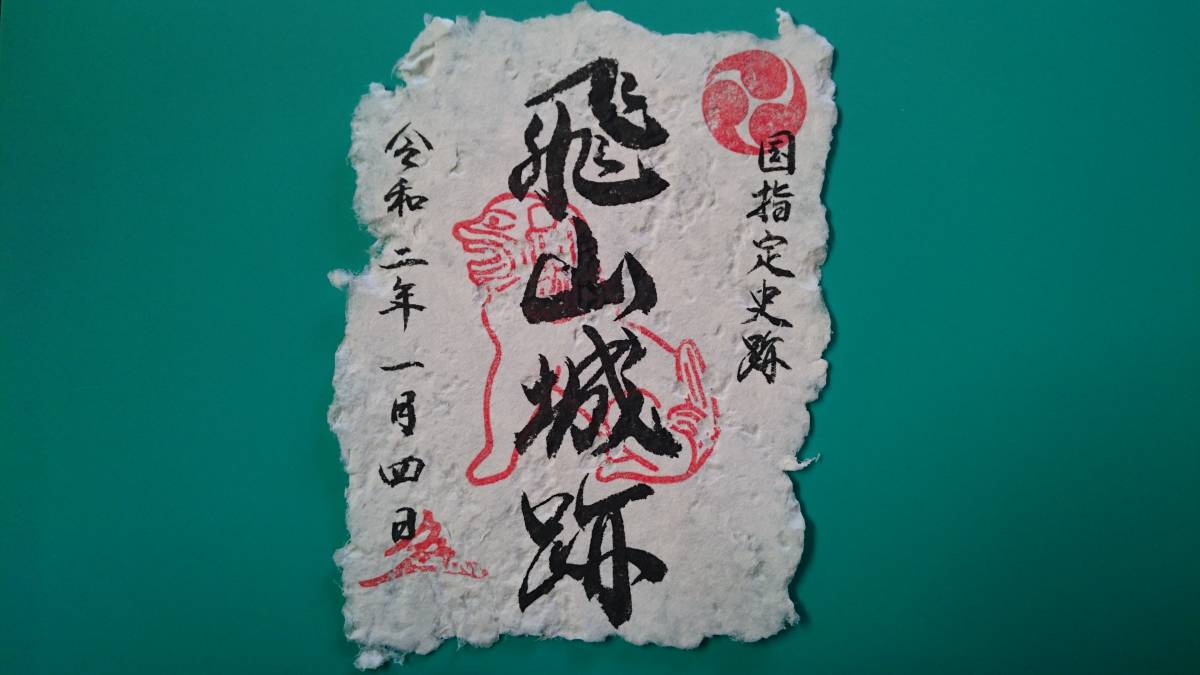 国指定史跡
飛山城跡
令和二年一月四日